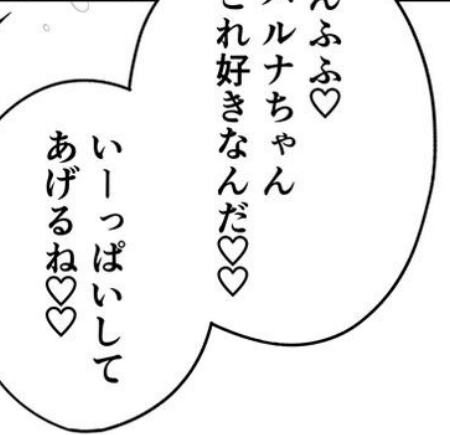 んふふ♡
ハルナちゃん
これ好きなんだ♡♡
いーっぱいして
あげるね♡♡